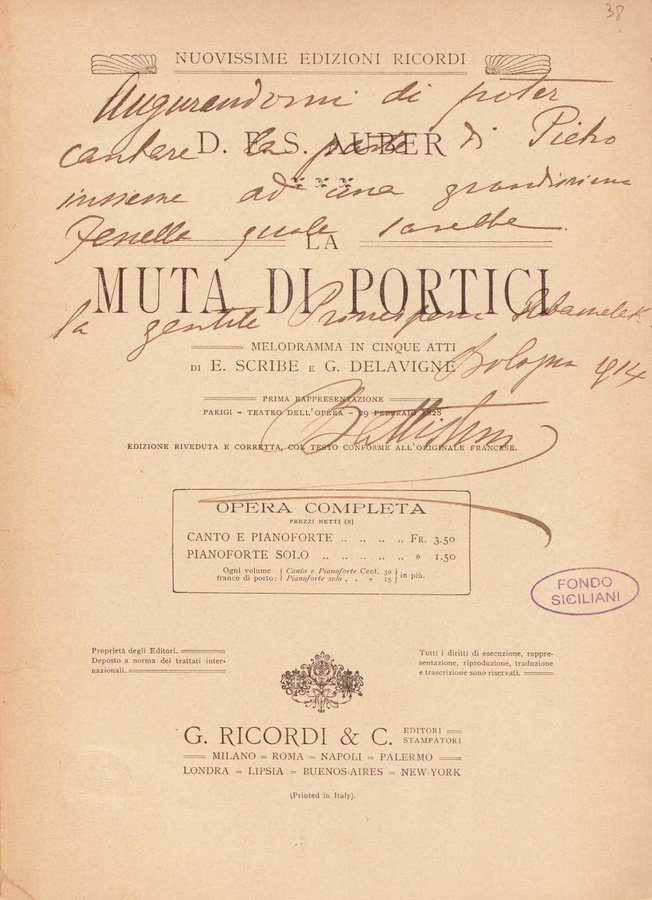 38
NUOVISSIME EDIZIONI RICORDI
Augurandomi di poter
D. F. S. AUBER
cantare la parte di Pietro
insieme ad una grandissima
Fenella quale sarebbe
LA
MUTA DI PORTICI
la gentile Principessa
MELODRAMMA IN CINQUE ATTI
DI E. SCRIBE E G. DELAVIGNE
Bologna 1914
PRIMA RAPPRESENTAZIONE
PARIGI - TEATRO DELL'OPERA - 29 FEBBRAIO 1828
Battistini
EDIZIONE RIVEDUTA E CORRETTA, COL TESTO CONFORME ALL'ORIGINALE FRANCESE.
OPERA COMPLETA
PREZZI NETTI (B)
CANTO E PIANOFORTE .. .. .. .. FR. 3.50
PIANOFORTE SOLO .. .. .. .. .. » 1.50
Ogni volume franco di porto: { Canto e Pianoforte Cent. 30 } in più.
Pianoforte solo . . » 15
FONDO
SICILIANI
Proprietà degli Editori.
Deposto a norma dei trattati inter-
nazionali.
Tutti i diritti di esecuzione, rappre-
sentazione, riproduzione, traduzione
e trascrizione sono riservati.
G. RICORDI & C. EDITORI STAMPATORI
MILANO = ROMA = NAPOLI = PALERMO
LONDRA = LIPSIA = BUENOS-AIRES = NEW-YORK
(Printed in Italy).